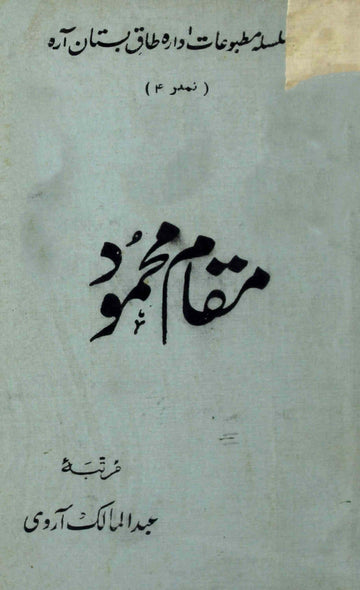 سلسلہ مطبوعات ادارہ طاق بستان آرہ
( نمبر ۴ )
مقام محمود
مرتبۂ
عبدالمالک آروی